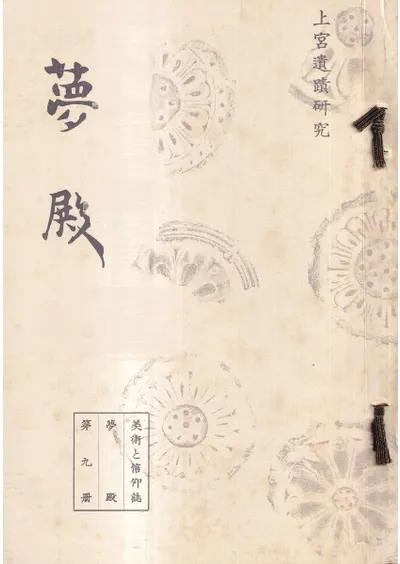 上宮遺蹟研究
夢殿
美術と信仰誌
夢殿
第九册